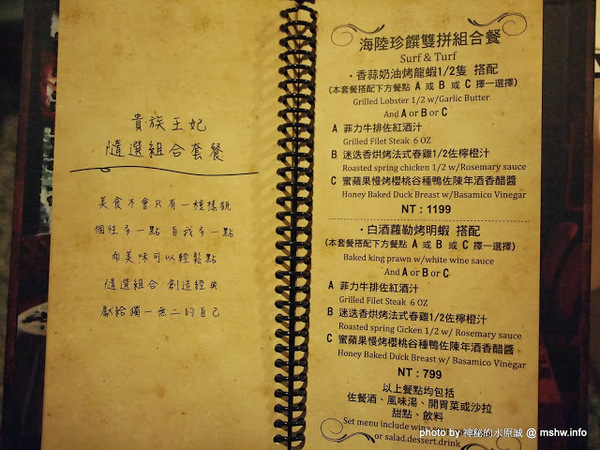 貴族王妃
隨選組合套餐
美食不會只有一種樣貌
個性多一點 自我多一點
而美味可以輕鬆點
隨選組合 創造經典
獻給獨一無二的自己
海陸珍饌雙拼組合餐
Surf & Turf
·香蒜奶油烤龍蝦1/2隻 搭配
(本套餐搭配下方餐點 A 或 B 或 C 擇一選擇)
Grilled Lobster 1/2 w/Garlic Butter
And A or B or C
A 菲力牛排佐紅酒汁
Grilled Filet Steak 6 OZ
B 迷迭香烘烤法式春雞1/2佐檸橙汁
Roasted spring chicken 1/2 w/Rosemary sauce
C 蜜蘋果慢烤櫻桃谷種鴨佐陳年酒香醋醬
Honey Baked Duck Breast w/ Basamico Vinegar
NT : 1199
·白酒蘿勒烤明蝦 搭配
(本套餐搭配下方餐點 A 或 B 或 C 擇一選擇)
Baked king prawn w/white wine sauce
And A or B or C
A 菲力牛排佐紅酒汁
Grilled Filet Steak 6 OZ
B 迷迭香烘烤法式春雞1/2佐檸橙汁
Roasted spring Cicken 1/2 w/ Rosemary sauce
C 蜜蘋果慢烤櫻桃谷種鴨佐陳年酒香醋醬
Honey Baked Duck Breast w/ Basamico Vinegar
NT : 799
以上餐點均包括
佐餐酒、風味湯、開胃菜或沙拉
甜點、飲料
Set menu include with
or salad.dessert.drink
photo by 神秘的水原誠 @ mshw.info